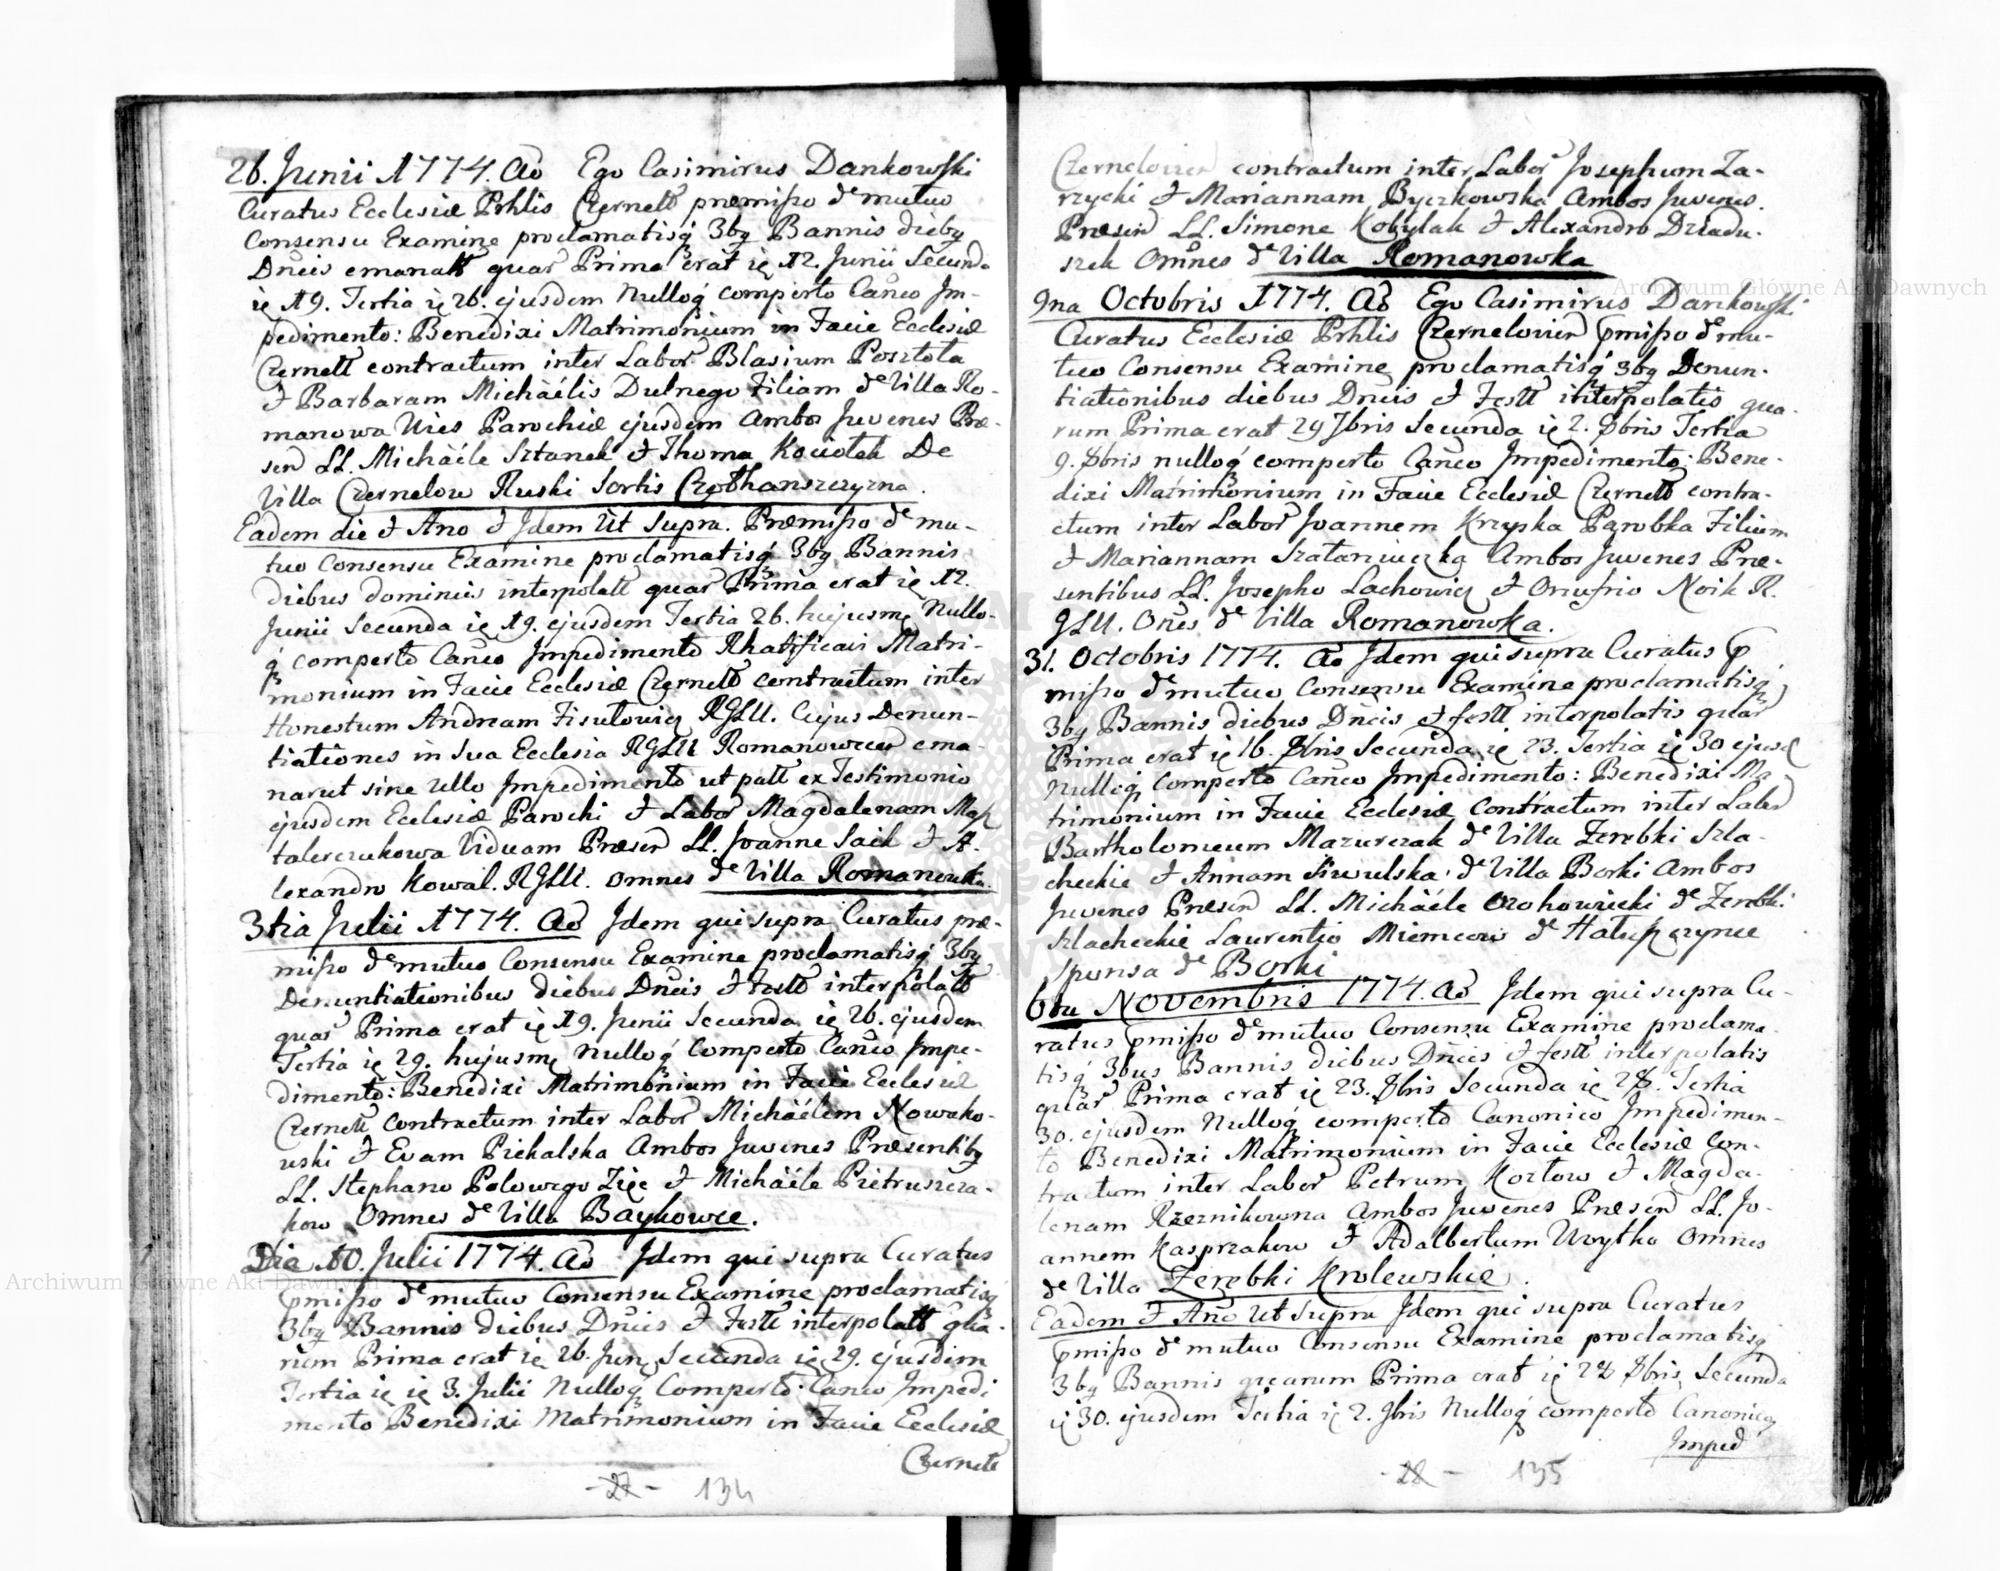 26. Junii 1774. Ao Ego Casimirus Dankowski
Curatus Ecclesiæ Prhlis Czernell præmisso de mutuo
Consensu Examine proclamatisq 3bq Bannis dieby
Dnicis emanatt quar Prima erat ię 12. Junii Secunda
ię 19. Tertia ię 26. ejusdem Nulloq comperto Canco Im-
pedimento: Benedixi Matrimonium in Facie Ecclesiæ
Czernell contractum inter Labor Blasium Posztola
& Barbaram Michäelis Dulnego Filiam de Villa Ro-
manowa Wies Parochiæ ejusdem Ambos Juvenes Præ-
sen LL. Michäele Sztanek & Thoma Kociołek De
Villa Czernelow Ruski Sortis
Eadem die & Ano & Idem Ut Supra. Præmisso de mu-
tuo Consensu Examine proclamatisq 3bq Bannis
diebus dominicis interpolatt quar Prima erat ię 12.
Junii Secunda ię 19. ejusdem Tertia 26. hujusmę Nullo-
q comperto Canco Impedimento Rhatificavi Matri-
monium in Facie Ecclesiæ Czernell contractum inter
Honestum Andream Fisulowicz RGLU. Cujus Denun-
tiationes in Sua Ecclesia RGLU Romanowcen ema-
narut sine ullo Impedimento ut patt ex Testimonio
ejusdem Ecclesiæ Parochi & Labor Magdalenam
Viduam Præsen LL. Joanne Saik & A-
lexandro Kowal. RGLU. omnes de Villa Romanowka.
3tia Julii 1774. Ao Idem qui supra Curatus præ-
misso de mutuo Consensu Examine proclamatisq 3bq
Denuntiationibus diebus Dnicis & Festt interpolatt
quar Prima erat ię 19. Junii Secunda ię 26. ejusdem
Tertia ię 29. hujusmę Nulloq Comperto Canco Impe-
dimento: Benedixi Matrimonium in Facie Ecclesiæ
Czernell contractum inter Labor Michäelem Nowako-
wski & Evam Piekalska Ambos Juvenes Præsentibq
LL. Stephano Polowego Zięc & Michäele Pietruszcza-
kow Omnes de Villa Baykowce.
Die 10. Julii 1774. Ao Idem qui supra Curatus
pmisso de mutuo Consensu Examine proclamatisq
3bq Bannis diebus Dnicis & Festt interpolatt qua-
rum Prima erat ię 26. Jun. Secunda ię 29. ejusdem
Tertia ię ię 3. Julii Nulloq Comperto Canco Impedi
mento Benedixi Matrimonium in Facie Ecclesiæ
Czernele
-27- 134
Czernelovien contractum inter Labor Josephum Za-
rzycki & Mariannam Byczkowska Ambos Juvenes.
Præsen LL. Simone Kobylak & Alexandro Dziadu-
szek Omnes de Villa Romanowka
9na Octobris 1774. Ao Ego Casimirus Dankowski
Curatus Ecclesiæ Prhlis Czernelovien pmisso de mu-
tuo Consensu Examine proclamatisq 3bq Denun-
tiationibus diebus Dnicis & Festt interpolatis qua-
rum Prima erat 29 7bris Secunda ię 2. 8bris Tertia
9. 8bris nulloq comperto Canco Impedimento: Bene-
dixi Matrimonium in Facie Ecclesiæ Czernell contra-
ctum inter Labor Joannem Krzyska Parobka Filium
& Mariannam Ambos Juvenes Præ-
sentibus LL. Josepho Lachowicz & Onufrio Noik R.
GLU. Ones de Villa Romanowka.
31. Octobris 1774. Ao Idem qui supra Curatus p
misso de mutuo Consensu Examine proclamatisq
3bq Bannis diebus Dnicis & festt interpolatis quar
Prima erat ię 16. 8bris Secunda ię 23. Tertia ię 30 ejusd
Nulloq Comperto Canco Impedimento: Benedixi Ma
trimonium in Facie Ecclesiæ Contractum inter Labor
Bartholomeum Mazurczak de Villa Zerebki Szla-
checkie & Annam Siwulska de Villa Borki Ambos
Juvenes Præsen LL. Michäele Orohowiecki de Zerebki
Szlacheckie Laurentio Niemcow de Hałuszczynce
Sponsa de Borki
6ta Novembris 1774. Ao Idem qui supra Cu-
ratus pmisso de mutuo Consensu Examine proclama-
tisq 3bus Bannis diebus Dnicis & festt interpolatis
quar Prima erat ię 23. 8bris Secunda ię 28. Tertia
30. ejusdem Nulloq comperto Canonico Impedimen-
to Benedixi Matrimonium in Facie Ecclesiæ Con-
tractum inter Labor Petrum Kozłow & Magda-
lenam Rzeznikowna Ambos Juvenes Præsen LL. Jo-
annem Kasprzakow & Adalbertum Woytko Omnes
de Villa Zerębki Krolewskie.
Eadem & Ano Ut supra Idem qui supra Curatus
pmisso de mutuo Consensu Examine proclamatisq
3bq Bannis quarum Prima erat ię 28 8bris Secunda
ię 30. ejusdem Tertia ię 2. 9bris Nulloq comperto Canonico
Imped
-28- 135
Archiwum Główne Akt Dawnych
Archiwum Główne Akt Dawnych